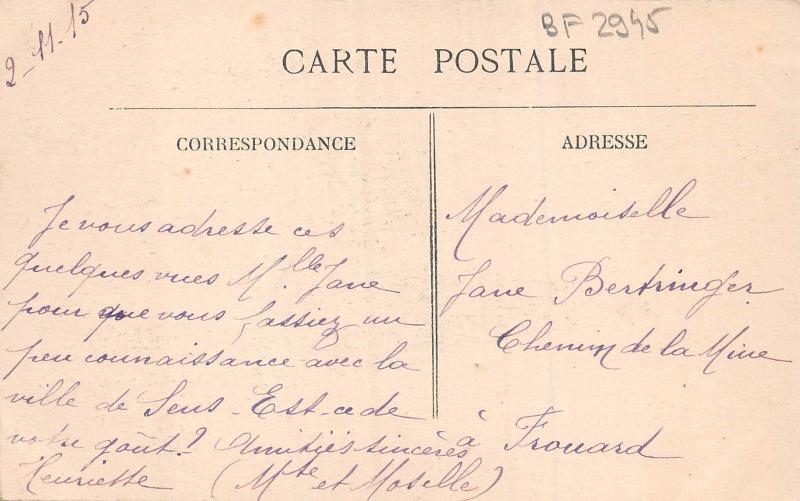 2-11-15
BF 2945
CARTE POSTALE
CORRESPONDANCE
Je vous adresse ces
quelques vues M.lle Jane
pour que vous fassiez un
peu connaissance avec la
ville de Sens - Est-ce de
votre goût? Amitiés sincères
Henriette
ADRESSE
Mademoiselle
Jane Bertringer
Chemin de la Mine
à Frouard
(Mte et Moselle)